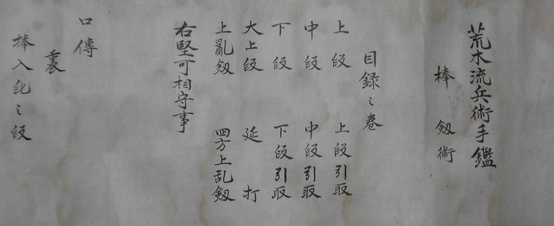 荒木流兵術手鑑
棒 剱術
目録之巻
上段 上段引取
中段 中段引取
下段 下段引取
大上段 延打
上亂剱 四方上乱剱
右堅可相守事
口傳
裏
棒入此之段